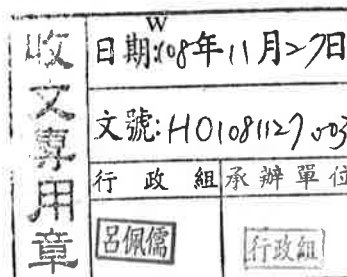 收文專用章
W
日期:108年11月27日
文號:HO1081127003
行政組 承辦單位
呂佩儒 行政組